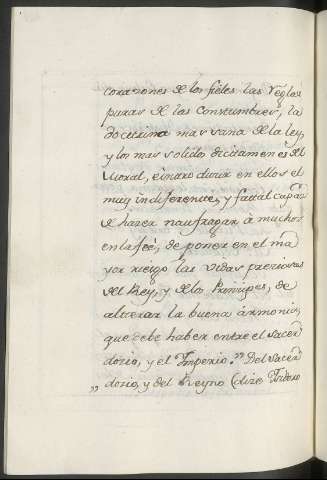 corazones de los fieles las reglas
puras de las Constumbres, la
doctrina mas sana de la ley,
y los mas solidos dictamenes del
Moral, é inxo ducir en ellos el
muy indiferente, y fatal capáz
de hazer naufragar à muchos
en la feé; de poner en el ma
yor riesgo las vidas preziosas
del Rey, y de los Prinzipes, de
alterar la buena ármonia,
que debe haber entre el sacer
dozio, y el Imperio. „ Del sacer
„ dozio, y del Reyno (dize Isidoro